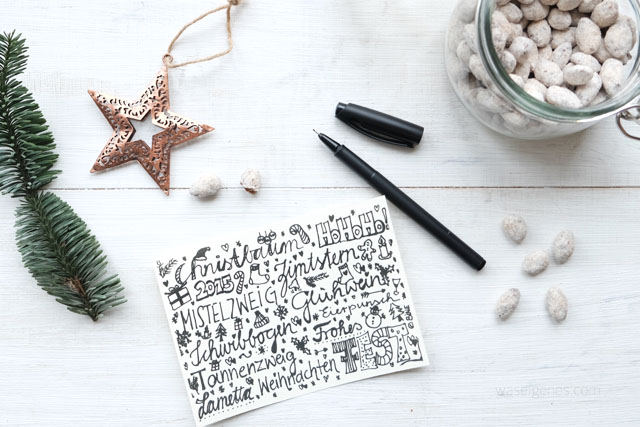 HOHOHO!
Christbaum
2015 Zimtstern
MISTELZWEIG Glühwein
Eierpunsch
Schwibbogen Frohes
Tannenzweig FEST
Lametta Weihnachten
waseigenes.com